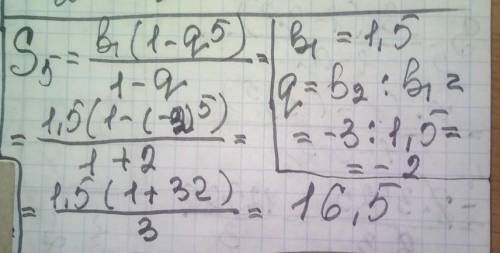 S₅ = b₁(1-q⁵)/(1-q) =
= 1,5(1-(-2)⁵)/(1+2) =
= 1,5(1+32)/3 = 16,5
b₁ = 1,5
q = b₂ : b₁ =
= -3 : 1,5 =
= -2